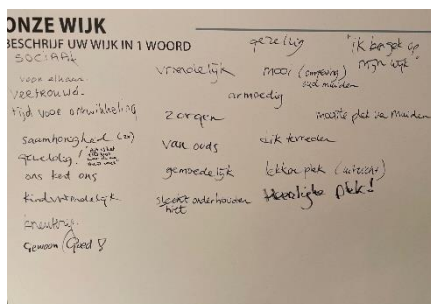 ONZE WIJK
BESCHRIJF UW WIJK IN 1 WOORD
SOCIAAL
voor elkaar
vertrouwd
tijd voor ontwikkeling
saamhorigheid (2x)
geweldig!
ons ked ons
kindvriendelijk
Gewoon Goed!
vriendelijk
zorgen
van ouds
gemoedelijk
slecht onderhouden
niet
gezellig
mooi (omgeving)
oud muiden
armoedig
dik tevreden
lekker plek (uitzicht)
Heerlijke plek!
"ik ben gek op
mijn wijk"
mooiste plek van Muiden